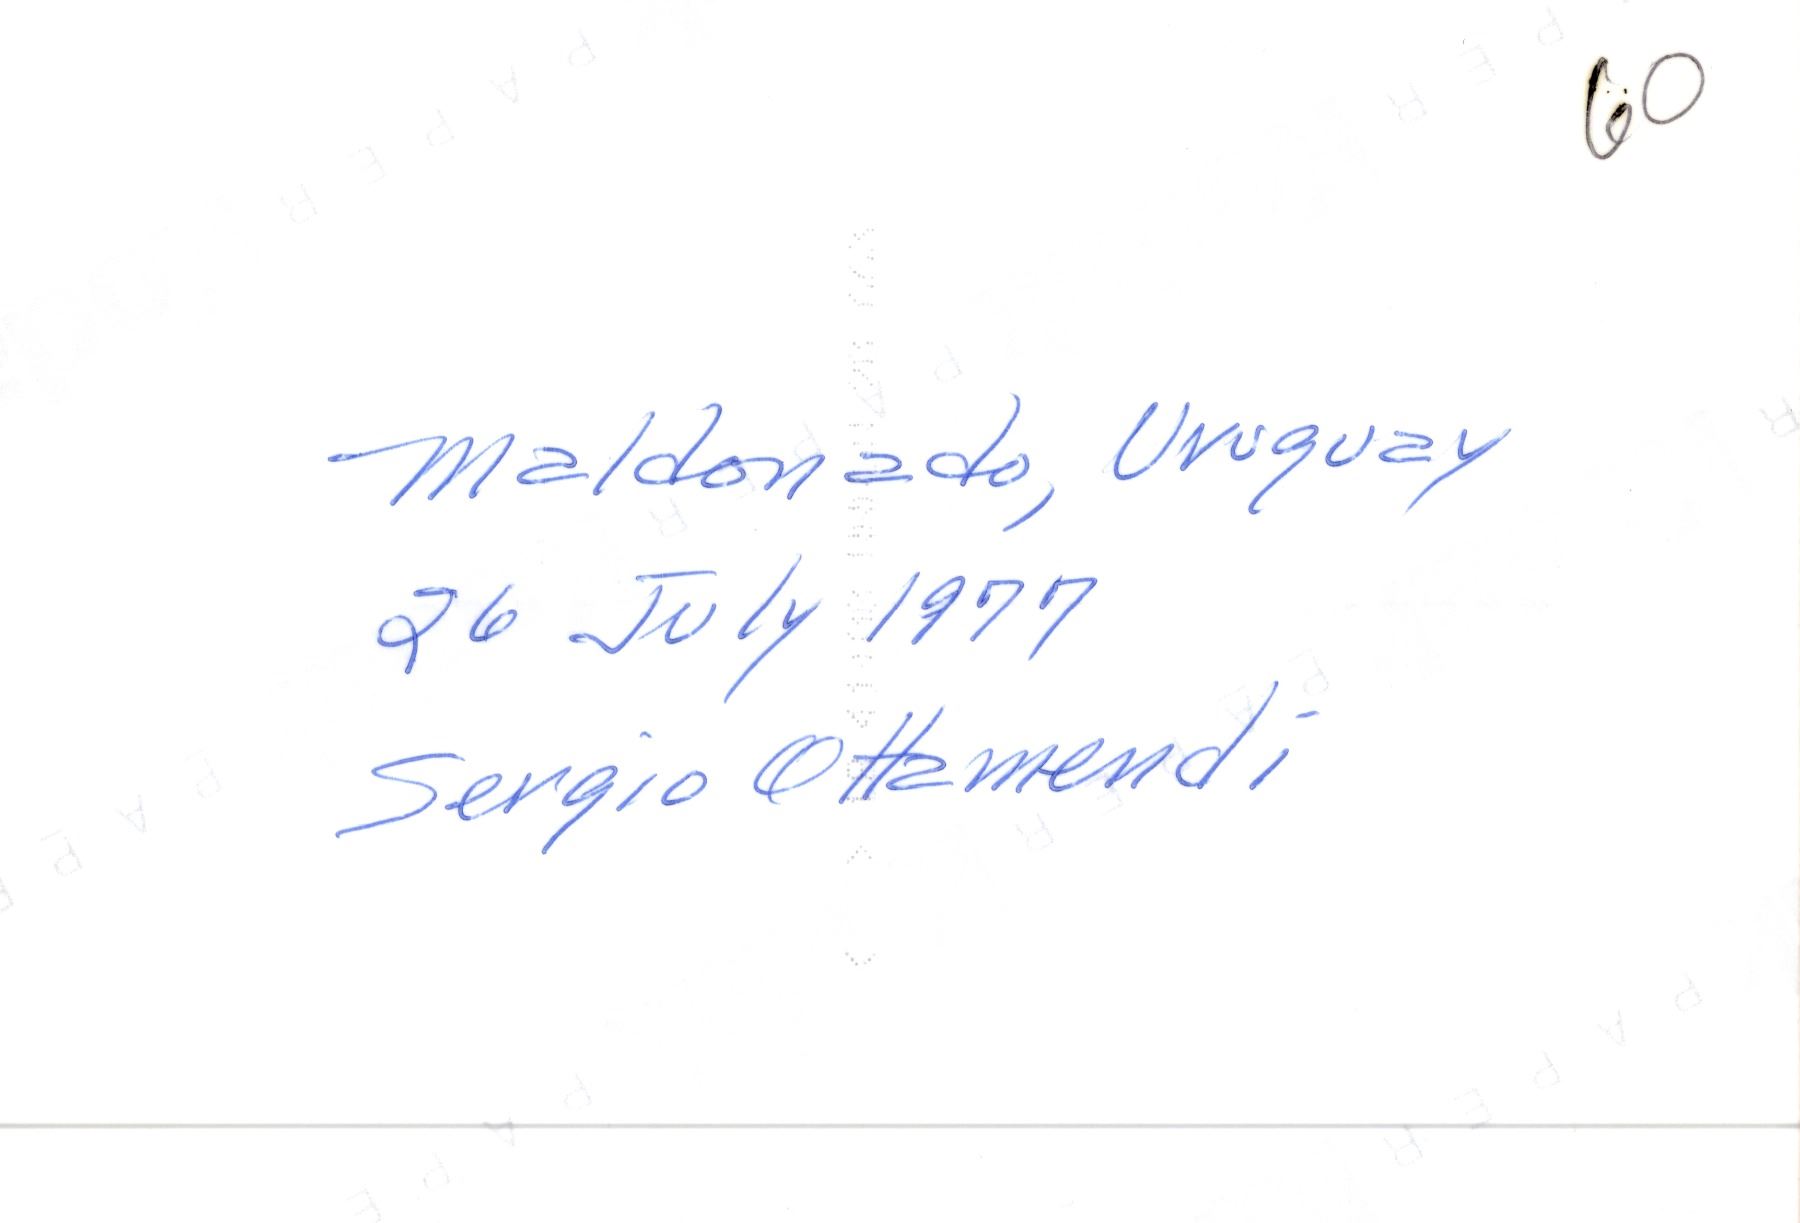 60
Maldonado, Uruguay
26 July 1977
Sergio Ottamendi